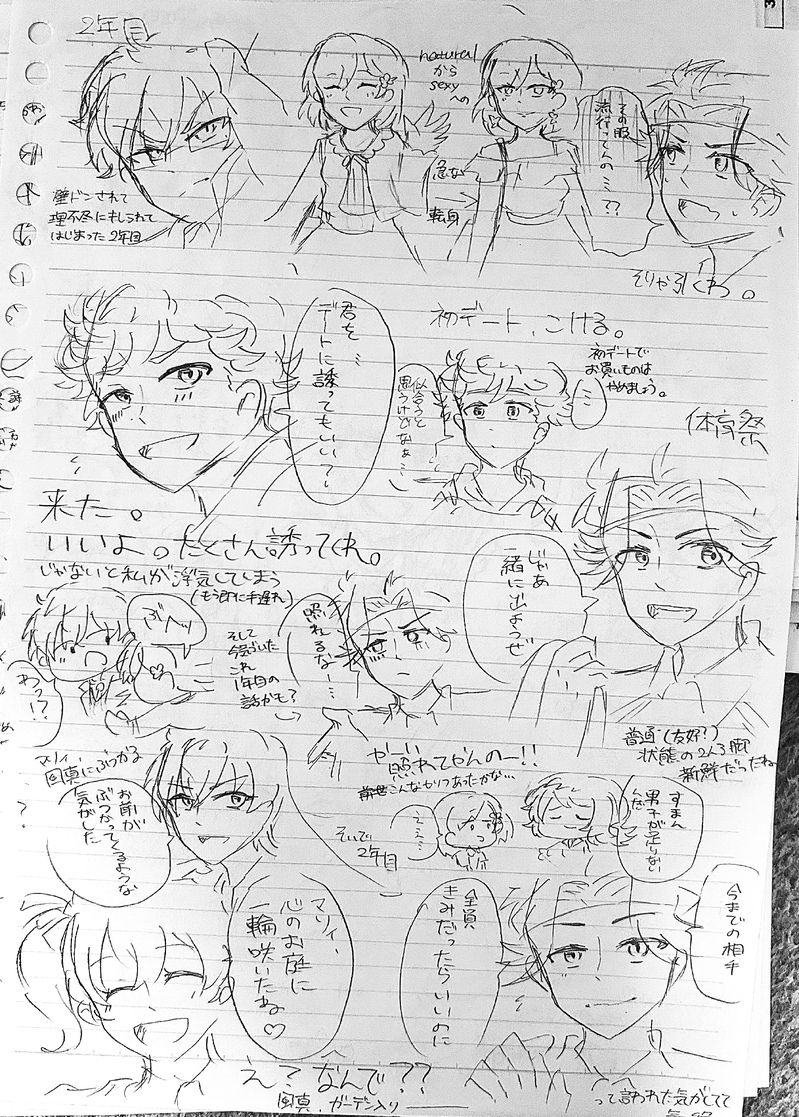 2年目
壁ドンされて
理不尽にキレられて
はじまった2年目
natural
から
sexy
への
急な
転身
その服
流行ってんの…??
そりゃ引くわ。
初デート、こける。
初デートで
お買いものは
やめましょう。
君を…
デートに誘ってもいい?
似合うと
思うけどなぁ…
来た。
いいよ。たくさん誘ってくれ。
じゃないと私が浮気してしまう
(もう既に手遅れ)
体育祭
じゃあ
一緒に出ようぜ
照れるなー…
そして
今気づいた
これ
1年目の
話かも?
わっ!?
マリィ、
風真にぶつかる
お前が
ぶつかってくるような
気がした
やーい
照れてやんのー!!
前世こんなセリフあったかな…
普通(友好?)
状態の2人3脚
新鮮だったね
そいで
2年目
ええ…
すまん
男子が足りない
んだ
今までの相手
全員
きみだったらいいのに
マリィ、
心のお庭に
一輪咲いたね♡
え?なんで??
風真、ガーデン入り
って言われた気がしてて